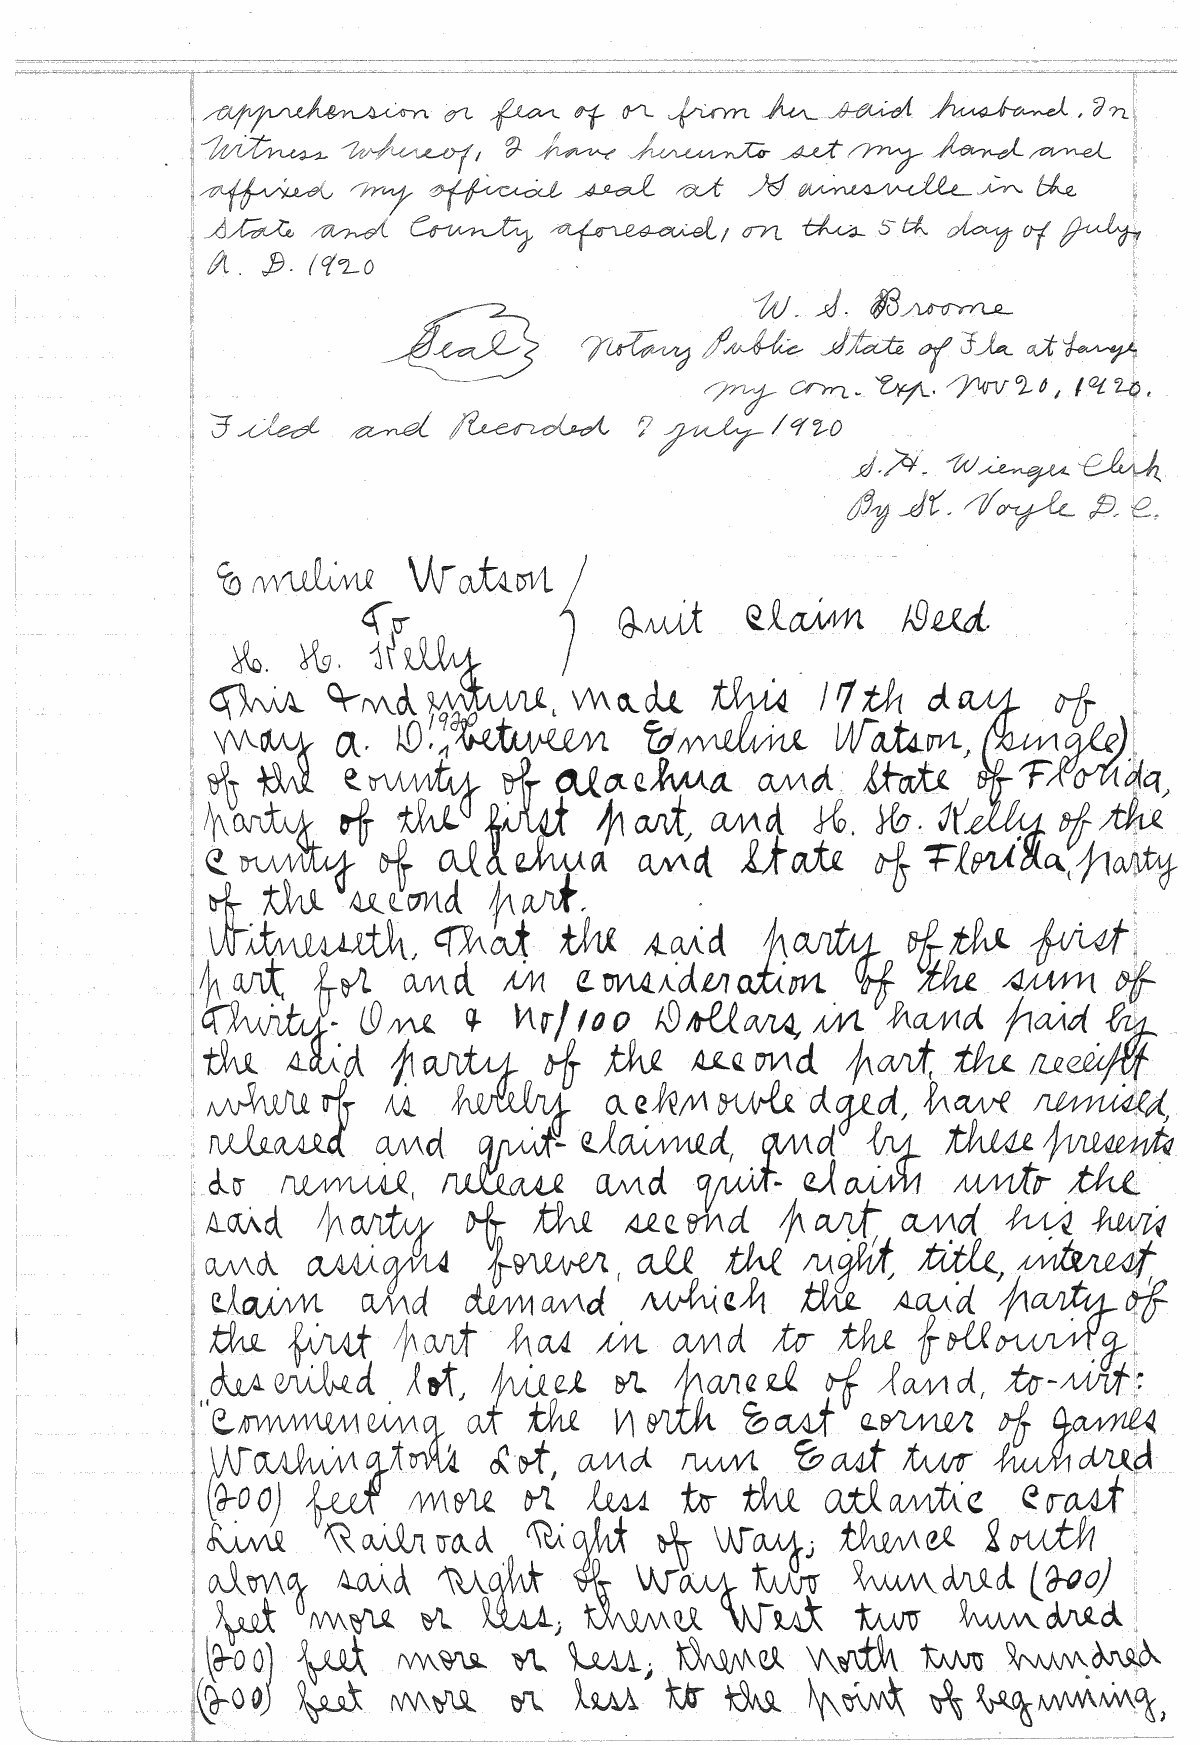 apprehension or fear of or from her said husband. In
Witness Whereof, I have hereunto set my hand and
affixed my official seal at Gainesville in the
State and County aforesaid, on this 5th day of July,
A. D. 1920
W. S. Broome
Seal Notary Public State of Fla at Large
My com. Exp. Nov 20, 1920.
Filed and Recorded 7 July 1920
S. H. Wienges Clerk
By K. Voyle D. C.
Emeline Watson
To Quit Claim Deed
H. H. Kelly
This Indenture, made this 17th day of
May A. D. 1920 between Emeline Watson, (single)
of the County of Alachua and State of Florida,
party of the first part, and H. H. Kelly of the
County of Alachua and State of Florida, party
of the second part.
Witnesseth, That the said party of the first
part, for and in consideration of the sum of
Thirty-One & No/100 Dollars, in hand paid by
the said party of the second part, the receipt
whereof is hereby acknowledged, have remised,
released and quit-claimed, and by these presents
do remise, release and quit-claim unto the
said party of the second part, and his heirs
and assigns forever, all the right, title, interest,
claim and demand which the said party of
the first part has in and to the following
described lot, piece or parcel of land, to-wit:
"Commencing at the North East corner of James
Washington's Lot, and run East two hundred
(200) feet more or less to the Atlantic Coast
Line Railroad Right of Way; thence South
along said Right of Way two hundred (200)
feet more or less; thence West two hundred
(200) feet more or less; thence North two hundred
(200) feet more or less to the point of beginning,